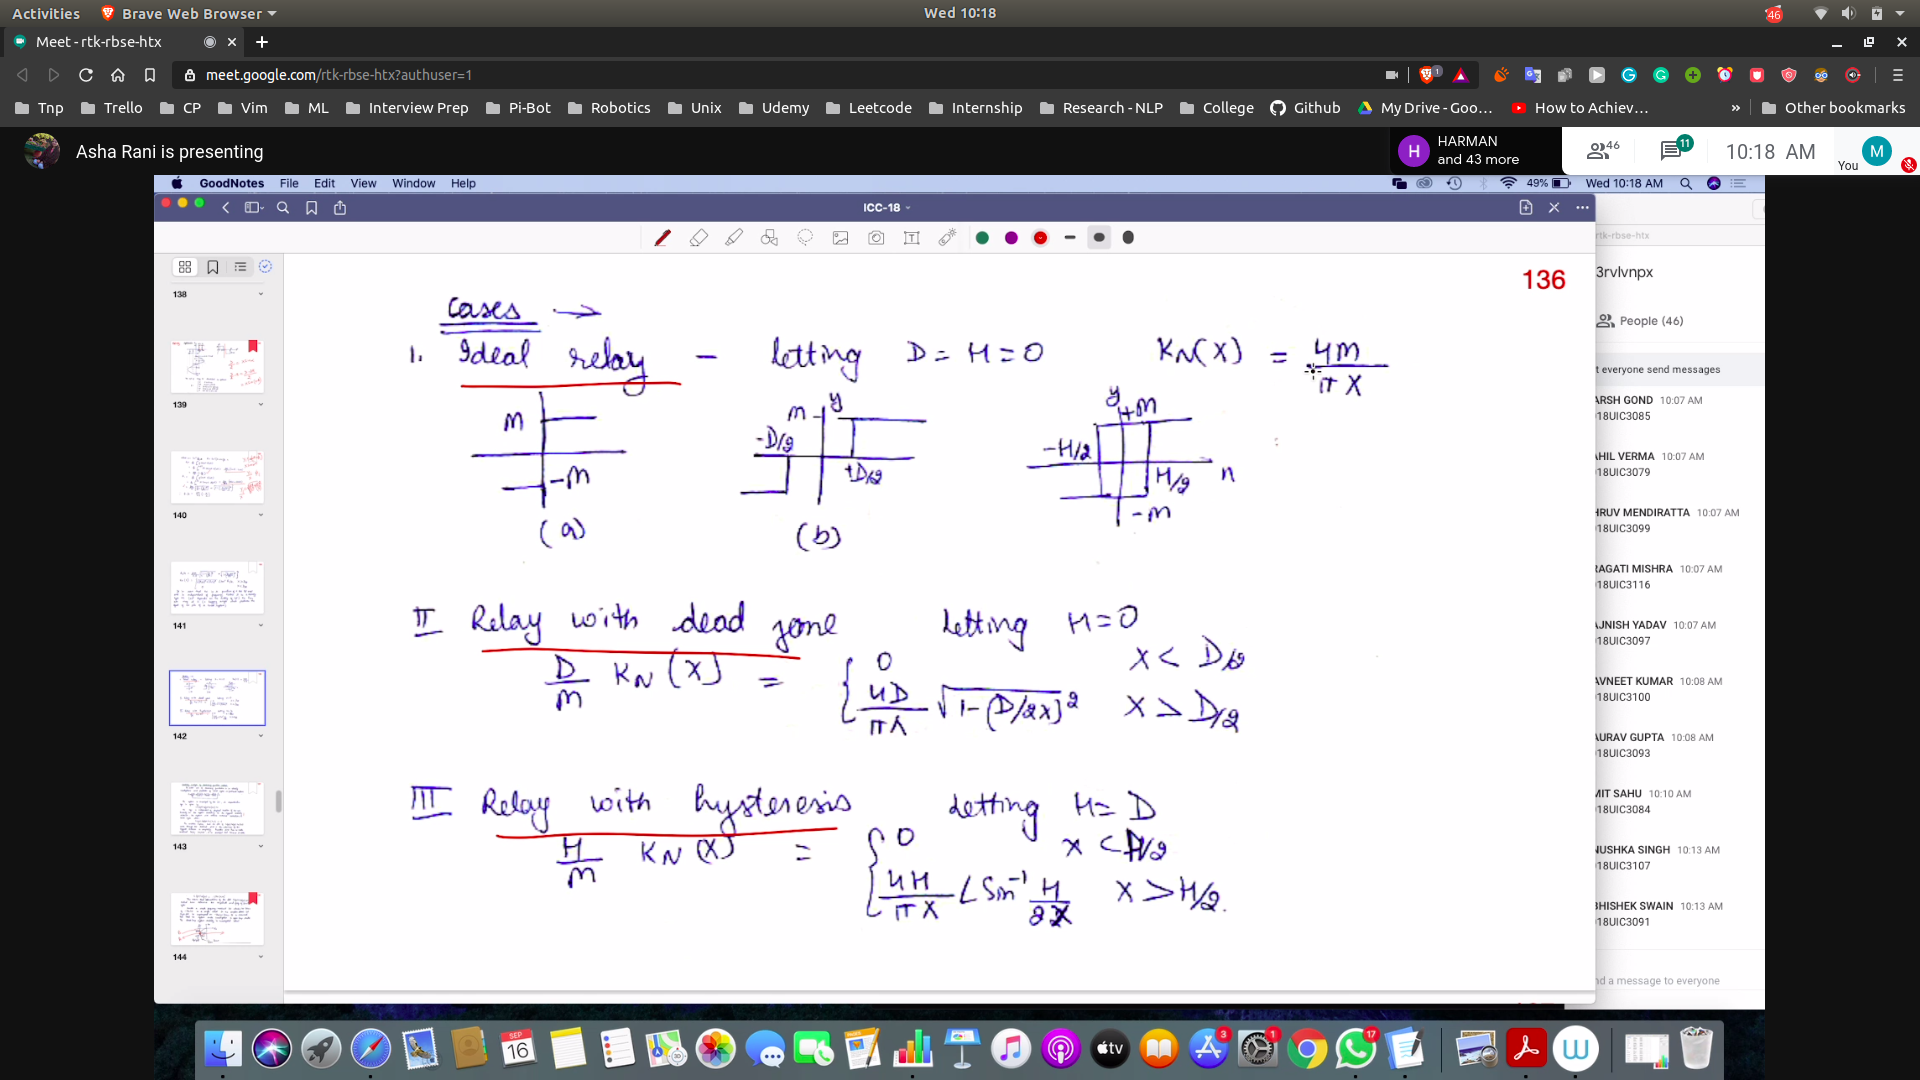 Activities
Brave Web Browser
Wed 10:18
46
Meet - rtk-rbse-htx
meet.google.com/rtk-rbse-htx?authuser=1
1
Tnp Trello CP Vim ML Interview Prep Pi-Bot Robotics Unix Udemy Leetcode Internship Research - NLP College Github My Drive - Goo… How to Achiev… » Other bookmarks
Asha Rani is presenting
H
HARMAN
and 43 more
46
11
10:18 AM
You
M
GoodNotes File Edit View Window Help
49%
Wed 10:18 AM
ICC-18
rtk-rbse-htx
138
139
140
141
142
143
144
136
Cases →
1. Ideal relay - letting D = H = 0 KN(X) = 4M/πX
M
-M
(a)
M y
-D/2
+D/2
(b)
y +M
-H/2
H/2
-M
n
II Relay with dead zone letting H=0
D/M KN(X) = { 0 X < D/2
4D/πX √1-(D/2X)² X > D/2
III Relay with hysteresis letting H = D
H/M KN(X) = { 0 X < H/2
4H/πX ∠Sin⁻¹ H/2X X > H/2.
3rvlvnpx
People (46)
t everyone send messages
ARSH GOND 10:07 AM
018UIC3085
AHIL VERMA 10:07 AM
018UIC3079
HRUV MENDIRATTA 10:07 AM
018UIC3099
RAGATI MISHRA 10:07 AM
018UIC3116
AJNISH YADAV 10:07 AM
018UIC3097
AVNEET KUMAR 10:08 AM
018UIC3100
AURAV GUPTA 10:08 AM
018UIC3093
MIT SAHU 10:10 AM
018UIC3084
NUSHKA SINGH 10:13 AM
018UIC3107
BHISHEK SWAIN 10:13 AM
018UIC3091
nd a message to everyone
SEP
16
tv
3
1
17
W